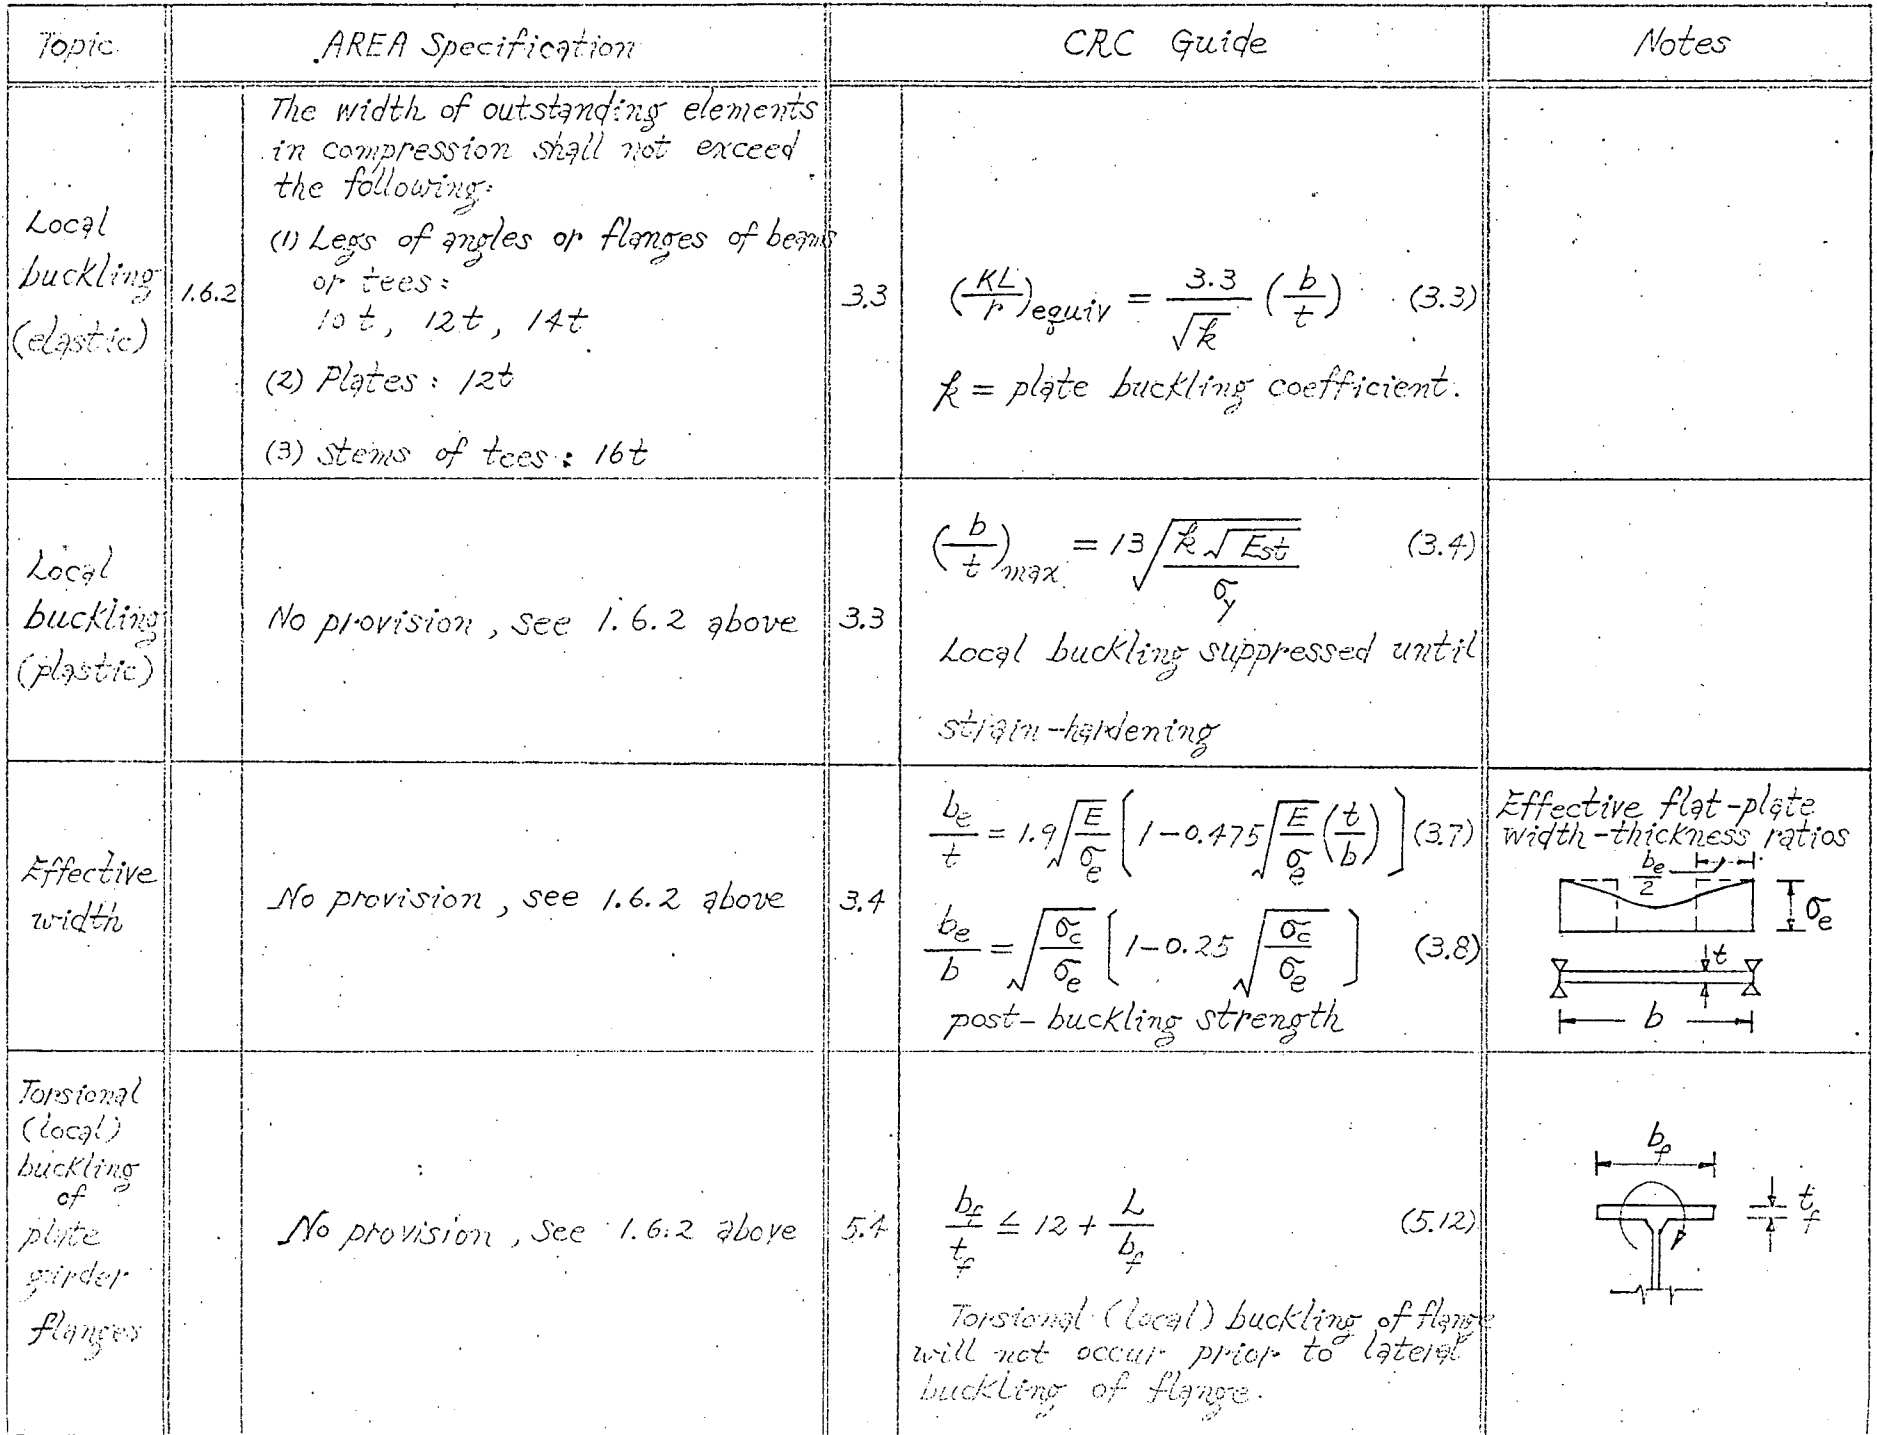 Topic
AREA Specification
CRC Guide
Notes
Local
buckling
(elastic)
1.6.2
The width of outstanding elements
in compression shall not exceed
the following:
(1) Legs of angles or flanges of beams
or tees:
10t, 12t, 14t
(2) Plates: 12t
(3) Stems of tees: 16t
3.3
(KL/r)equiv = 3.3/√k (b/t) (3.3)
k = plate buckling coefficient.
Local
buckling
(plastic)
No provision, see 1.6.2 above
3.3
(b/t)max = 13 √(k √Est / σy) (3.4)
Local buckling suppressed until
strain-hardening
Effective
width
No provision, see 1.6.2 above
3.4
be/t = 1.9 √(E/σe) [1-0.475 √(E/σe) (t/b)] (3.7)
be/b = √(σc/σe) [1-0.25 √(σc/σe)] (3.8)
post-buckling strength
Effective flat-plate
width-thickness ratios
be/2
σe
t
b
Torsional
(local)
buckling
of
plate
girder
flanges
No provision, see 1.6.2 above
5.4
bf/tf ≤ 12 + L/bf (5.12)
Torsional (local) buckling of flange
will not occur prior to lateral
buckling of flange.
bf
tf